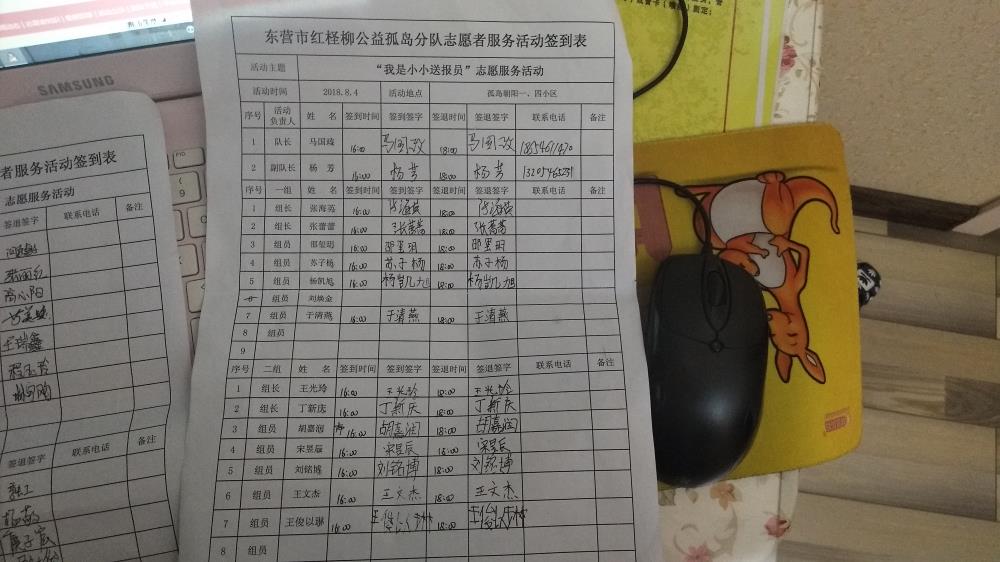 SAMSUNG
东营市红柽柳公益孤岛分队志愿者服务活动签到表
活动主题 "我是小小送报员"志愿服务活动
活动时间 2018.8.4 活动地点 孤岛朝阳一、四小区
序号 活动负责人 姓 名 签到时间 签到签字 签退时间 签退签字 联系电话 备注
1 队长 16:00 18:00
2 副队长 杨 芳 16:00 杨芳 18:00 杨芳
序号 一组 姓 名 签到时间 签到签字 签退时间 签退签字 联系电话 备注
1 组长 张海英 16:00 18:00
2 组长 张蕾蕾 16:00 18:00
3 组员 邵玺玥 16:00 18:00
4 组员 苏子杨 16:00 苏子杨 18:00 苏子杨
5 组员 杨凯旭 16:00 杨凯旭 18:00 杨凯旭
组员 刘焕金
7 组员 于清燕 16:00 于清燕 18:00 于清燕
8 组员
9
序号 二组 姓 名 签到时间 签到签字 签退时间 签退签字 联系电话 备注
1 组长 王光玲 16:00 王光玲 18:00 王光玲
2 组长 丁新庆 16:00 丁新庆 18:00 丁新庆
3 组员 胡嘉润 16:00 胡嘉润 18:00 胡嘉润
4 组员 宋昱辰 16:00 宋昱辰 18:00 宋昱辰
5 组员 刘铭博 16:00 刘铭博 18:00 刘铭博
6 组员 王文杰 16:00 王文杰 18:00 王文杰
7 组员 王俊以琳 16:00 18:00
8 组员
者服务活动签到表
志愿服务活动
签退签字 联系电话 备注
高心阳
签退签字 联系电话 备注